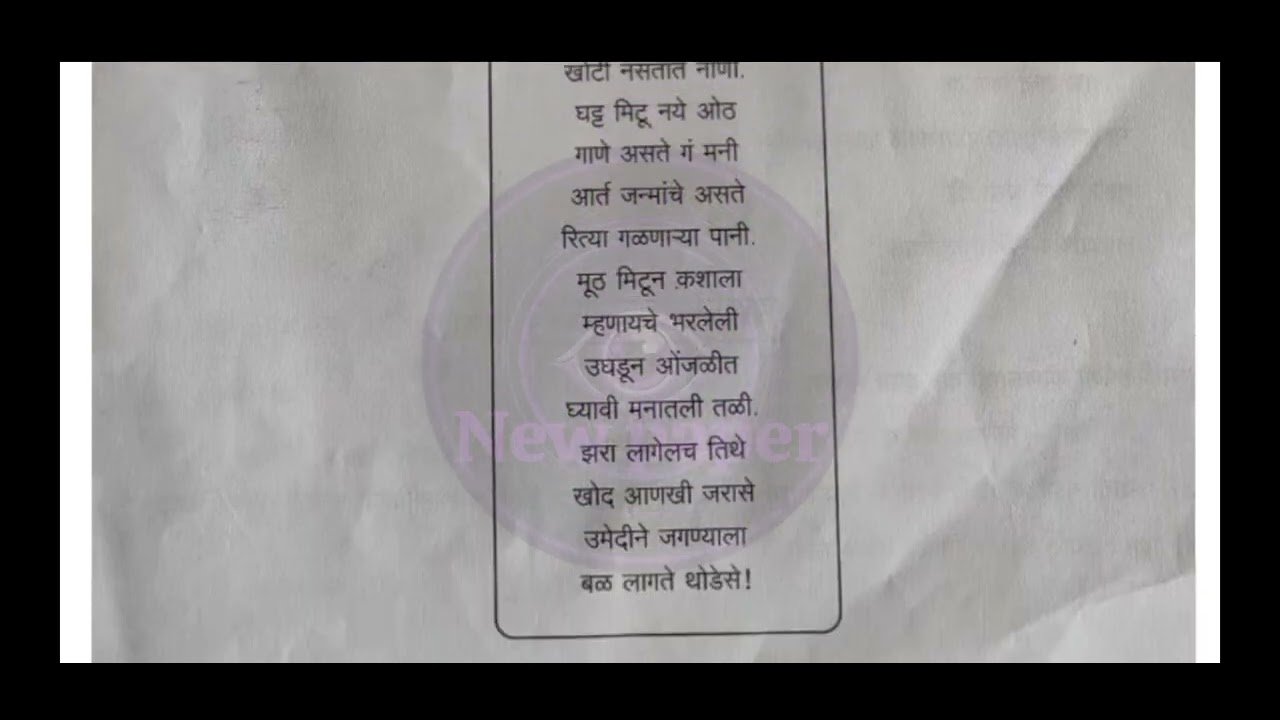 खोटी नसतात नाणी.
घट्ट मिटू नये ओठ
गाणे असते गं मनी
आर्त जन्मांचे असते
रित्या गळणाऱ्या पानी.
मूठ मिटून क़शाला
म्हणायचे भरलेली
उघडून ओंजळीत
घ्यावी मनातली तळी.
झरा लागेलच तिथे
खोद आणखी जरासे
उमेदीने जगण्याला
बळ लागते थोडेसे!